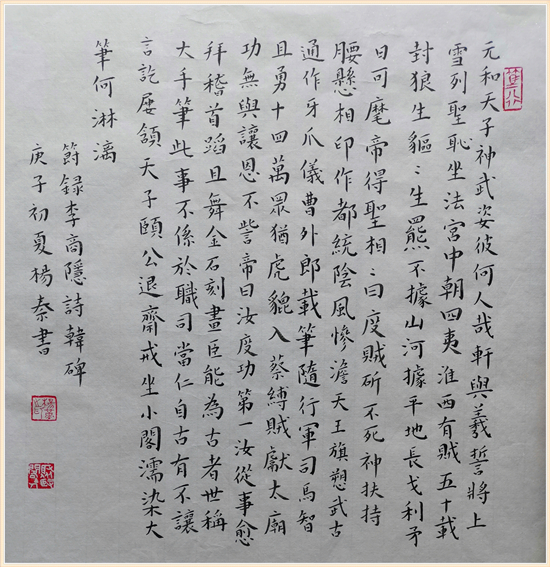 元和天子神武姿彼何人哉軒與羲誓將上
雪列聖恥坐法宮中朝四夷淮西有賊五十載
封狼生貙〻生羆不據山河據平地長戈利矛
日可麾帝得聖相〻曰度賊斫不死神扶持
腰懸相印作都統陰風慘澹天王旗愬武古
通作牙爪儀曹外郎載筆隨行軍司馬智
且勇十四萬眾猶虎貔入蔡縛賊獻太廟
功無與讓恩不訾帝曰汝度功第一汝從事愈
拜稽首蹈且舞金石刻畫臣能為古者世稱
大手筆此事不係於職司當仁自古有不讓
言訖屢頷天子頤公退齋戒坐小閣濡染大
筆何淋漓
節錄李商隱詩韓碑
庚子初夏楊秦書